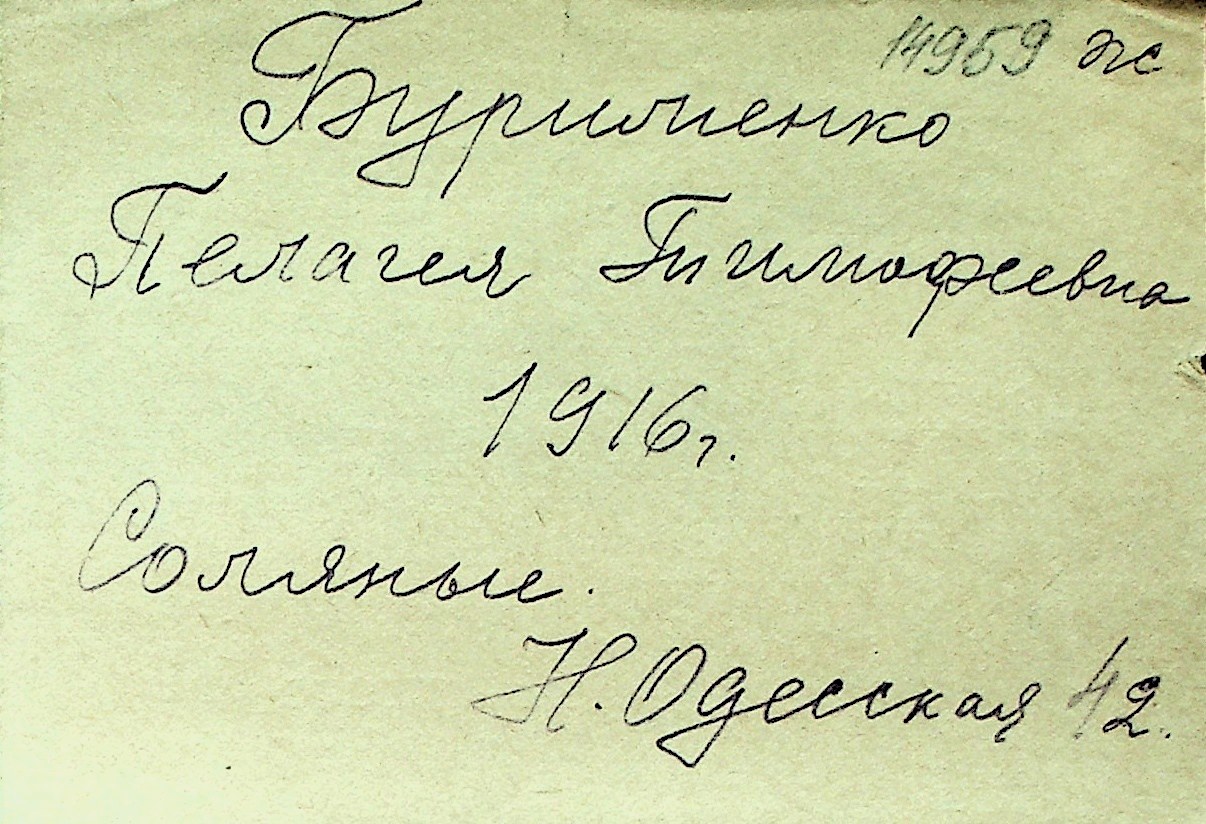 14959 ж
Буримченко
Пелагея Тимофеевна
1916г.
Соляные.
Н. Одесская 42.